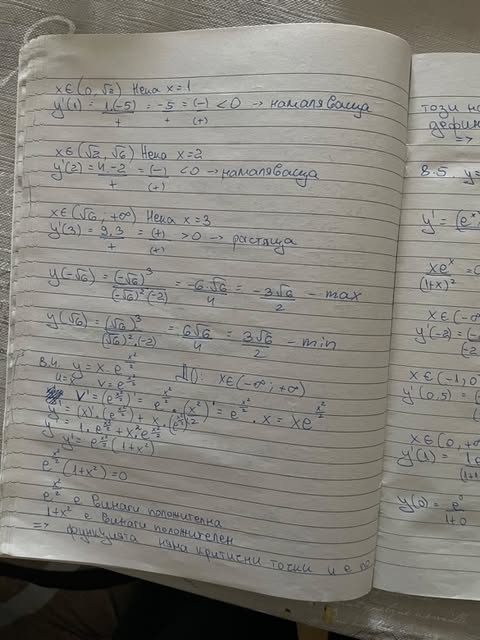 x∈(0,√2) Нека x=1
y'(1) = 1.(-5)/+ = -5/+ = (-)/(+) <0 → намаляваща
x∈(√2,√6) Нека x=2
y'(2) = 4.-2/+ = (-)/(+) <0 → намаляваща
x∈(√6;+∞) Нека x=3
y'(3) = 9.3/+ = (+)/(+) >0 → растяща
y(-√6) = (-√6)³/(-√6)²(-2) = -6.√6/4 = -3√6/2 - max
y(√6) = (√6)³/(√6)².(-2) = 6√6/4 = 3√6/2 - min
8.4. y = x.e^(x²/2) Д(): x∈(-∞;+∞)
u=x v=e^(x²/2)
v' = (e^(x²/2))' = e^(x²/2).(x²/2)' = e^(x²/2).x = xe^(x²/2)
y' = (x)'.(e^(x²/2)) + x.(e^(x²/2))'
y' = 1.e^(x²/2) + x.x e^(x²/2)
y' = e^(x²/2)(1+x²)
e^(x²/2)(1+x²)=0
e^(x²/2) е винаги положителна
1+x² е винаги положителен
=> функцията няма критични точки и е
този
=>
8.5. y=
y' = (eˣ
xeˣ/(1+x)² =0
x∈(-∞
y'(-2) =
x∈(-1;0
y'(0,5) =
x∈(0,+∞
y'(1) =
y(0) = e⁰/1+0